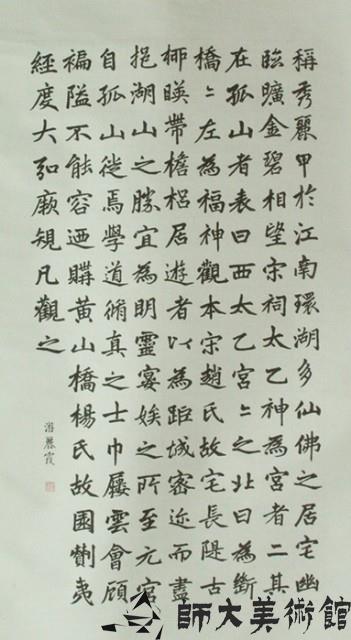 稱秀麗甲於江南環湖多仙佛之居宅幽
臨曠金碧相望宋祠太乙神為宮者二其
在孤山者表曰西太乙宮〻之北曰為斷
橋〻左為福神觀本宋趙氏故宅長隄古
柳暎帶檐梠居遊者以為距城密迩而盡
挹湖山之勝宜為明靈宴娭之所至元官
自孤山徙焉學道脩真之士巾屨雲會顧
褊隘不能容迺購黃山橋楊氏故園劗夷
經度大弘厥規凡觀之
游麗霞
師大美術館